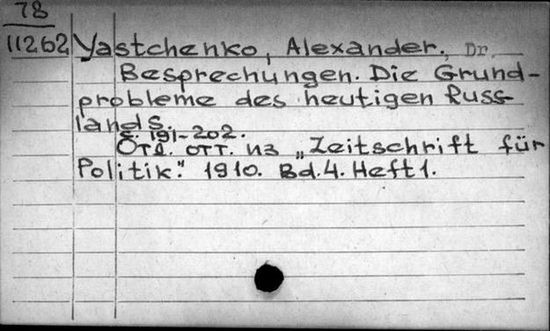 78
11262 Yastchenko, Alexander. Dr.
Besprechungen. Die Grund-
probleme des heutigen Russ-
lands.
S. 191-202.
Отд. отт. из „Zeitschrift für
Politik." 1910. Bd.4. Heft 1.